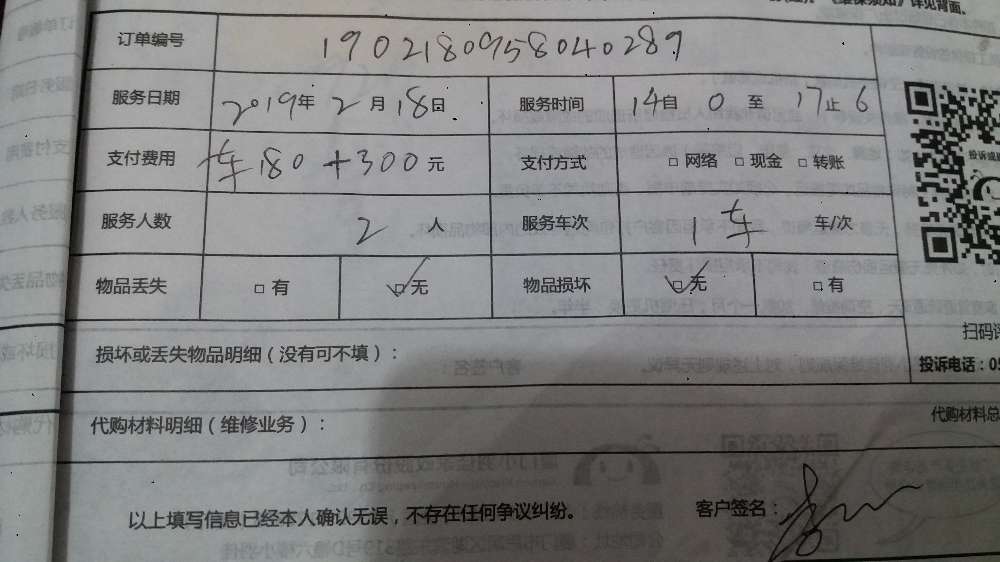 《维保须知》详见背面。
订单编号 1902180958040289
服务日期 2019年2月18日 服务时间 14自0至17止6
支付费用 车180+300元 支付方式 □网络 □现金 □转账
服务人数 2人 服务车次 1车 车/次
物品丢失 □有 ☑无 物品损坏 ☑无 □有
损坏或丢失物品明细（没有可不填）：
扫码
投诉电话：05
代购材料明细（维修业务）：
代购材料总
以上填写信息已经本人确认无误，不存在任何争议纠纷。
客户签名：